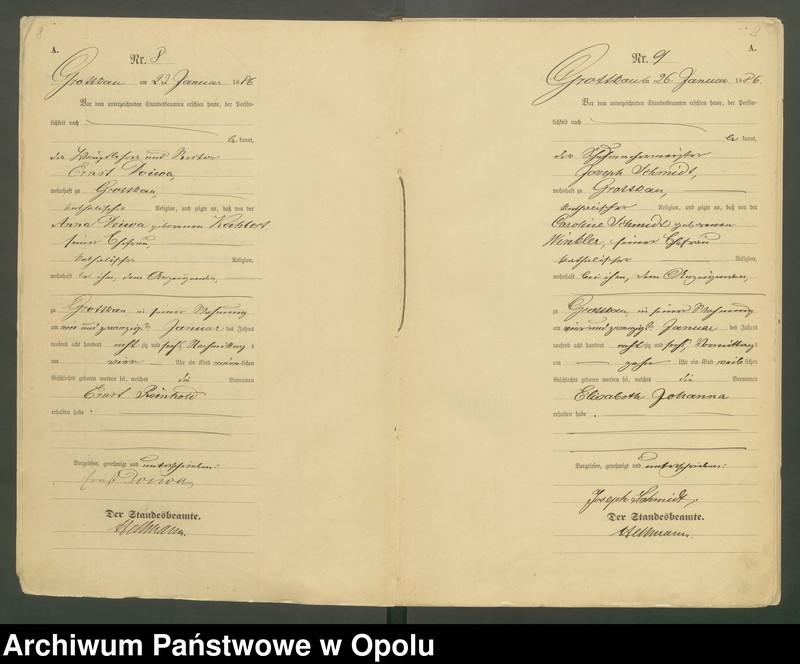 8
A.
Nr. 8
Grottkau am 22 Januar 1886
Vor dem unterzeichneten Standesbeamten erschien heute, der Persön-
lichkeit nach
be kannt,
der Hauptlehrer und Rector
Ernst
wohnhaft zu Grottkau,
katholischer Religion, und zeigte an, daß von der
Anna geborenen Kahlert
seiner Ehefrau,
katholischer Religion,
wohnhaft bei ihm, dem Anzeigenden,
zu Grottkau in seiner Wohnung
am ein und zwanzigsten Januar des Jahres
tausend acht hundert achtzig und sechs Nachmittags
um vier Uhr ein Kind männlichen
Geschlechts geboren worden sei, welches die Vornamen
Ernst Reinhold
erhalten habe.
Vorgelesen, genehmigt und unterschrieben:
Ernst
Der Standesbeamte.
Hellmann.
9
A.
Nr. 9
Grottkau am 26. Januar 1886.
Vor dem unterzeichneten Standesbeamten erschien heute, der Persön-
lichkeit nach
be kannt,
der Schuhmachermeister
Joseph Schmidt,
wohnhaft zu Grottkau,
katholischer Religion, und zeigte an, daß von der
Caroline Schmidt geborenen
Winkler, seiner Ehefrau
katholischer Religion,
wohnhaft bei ihm, dem Anzeigenden,
zu Grottkau, in seiner Wohnung
am vier und zwanzigsten Januar des Jahres
tausend acht hundert achtzig und sechs, Vormittags
um zehn Uhr ein Kind weiblichen
Geschlechts geboren worden sei, welches die Vornamen
Elisabeth Johanna
erhalten habe.
Vorgelesen, genehmigt und unterschrieben:
Joseph Schmidt,
Der Standesbeamte.
Hellmann.
Archiwum Państwowe w Opolu